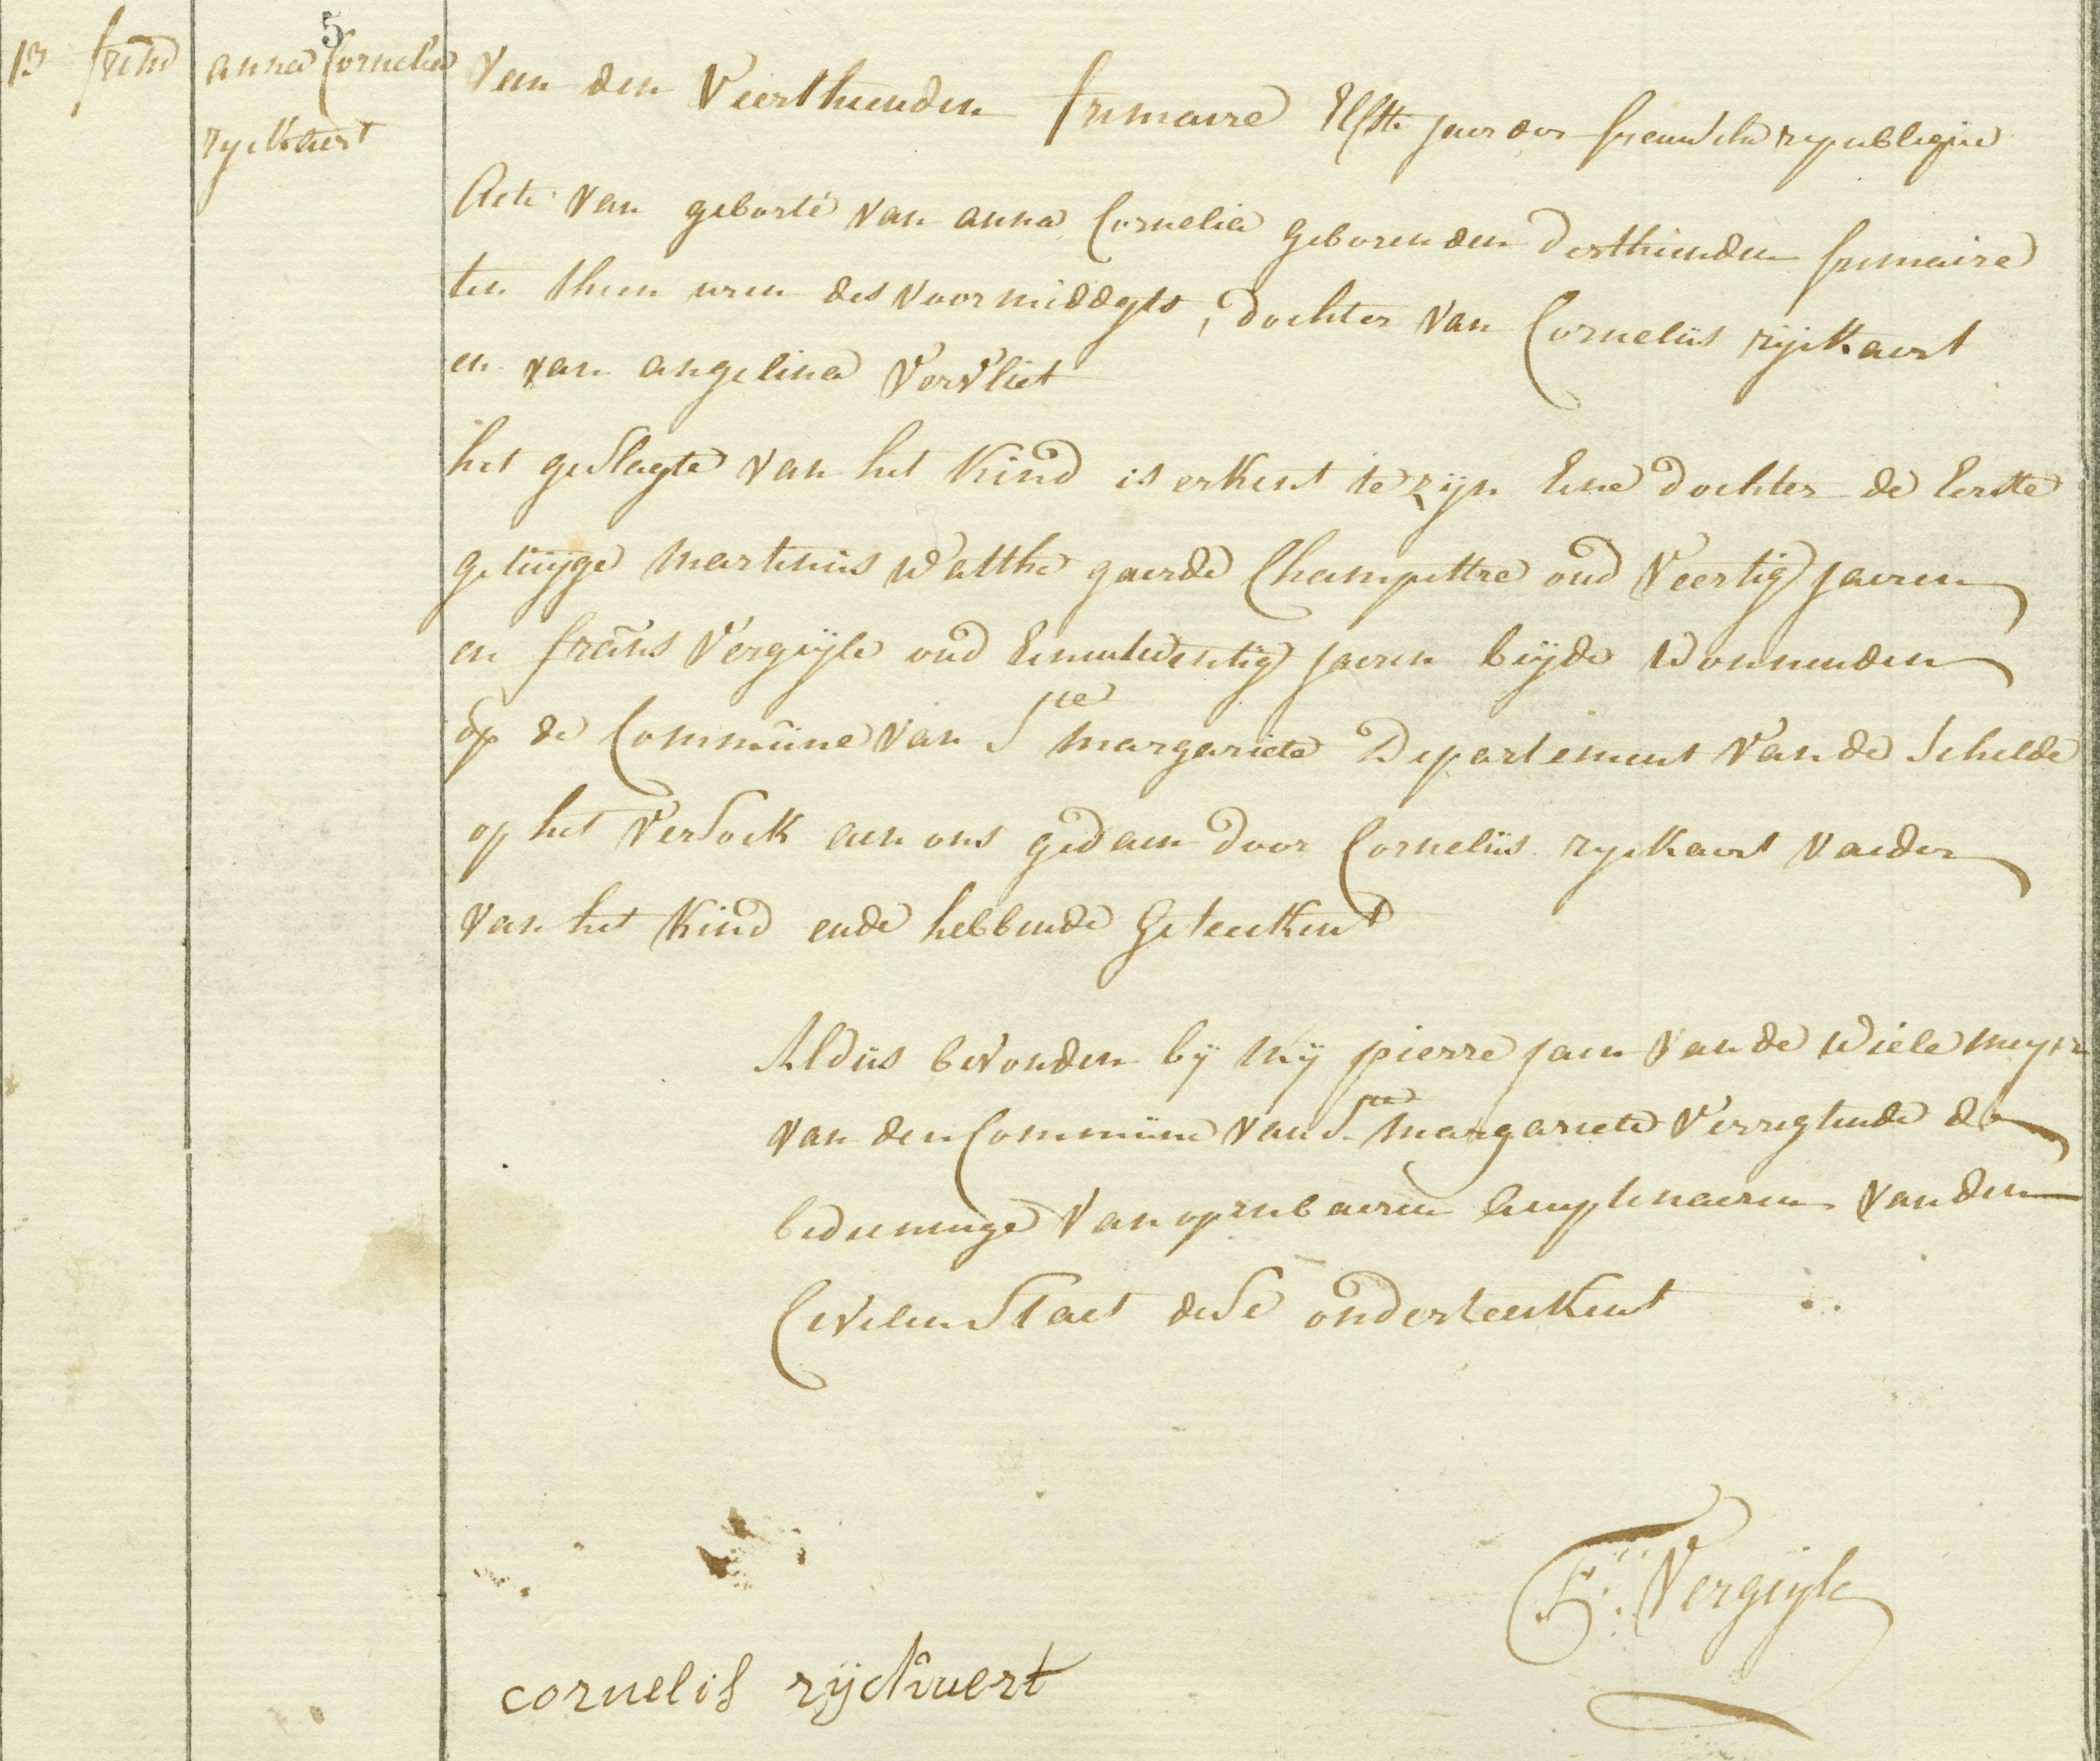 5
13 frim
anna Cornelia
ryckaert
Van den Veerthienden frimaire Elfste jaer der fransche republique
Acte van geborte van anna Cornelia geboren den derthienden frimaire
ten thien uren des voormiddgts, dochter van Cornelius rijckaert
en van angelina Vervliet
het geslagte van het Kind is erkent te zijn Eene dochter de Eerste
getuijge martinus Watthe gaerde Champettre oud Veertig jaeren
en frans Vergeijle oud Eenentwentig jaeren beijde Wonnenden
op de Commune van Ste margariete Departement Van de Schelde
op het Versoek aen ons gedaen door Cornelius ryckaert vaeder
van het Kind ende hebbende Geteekent
Aldus bevonden bij mij pierre jaen Van de Wiele meyer
van den Commune van Ste margariete Verregtende de
bedieninge van openbaeren Amptenaeren van den
Civilen Staet dese onderteekent
F: Vergeyle
cornelis rijckaert